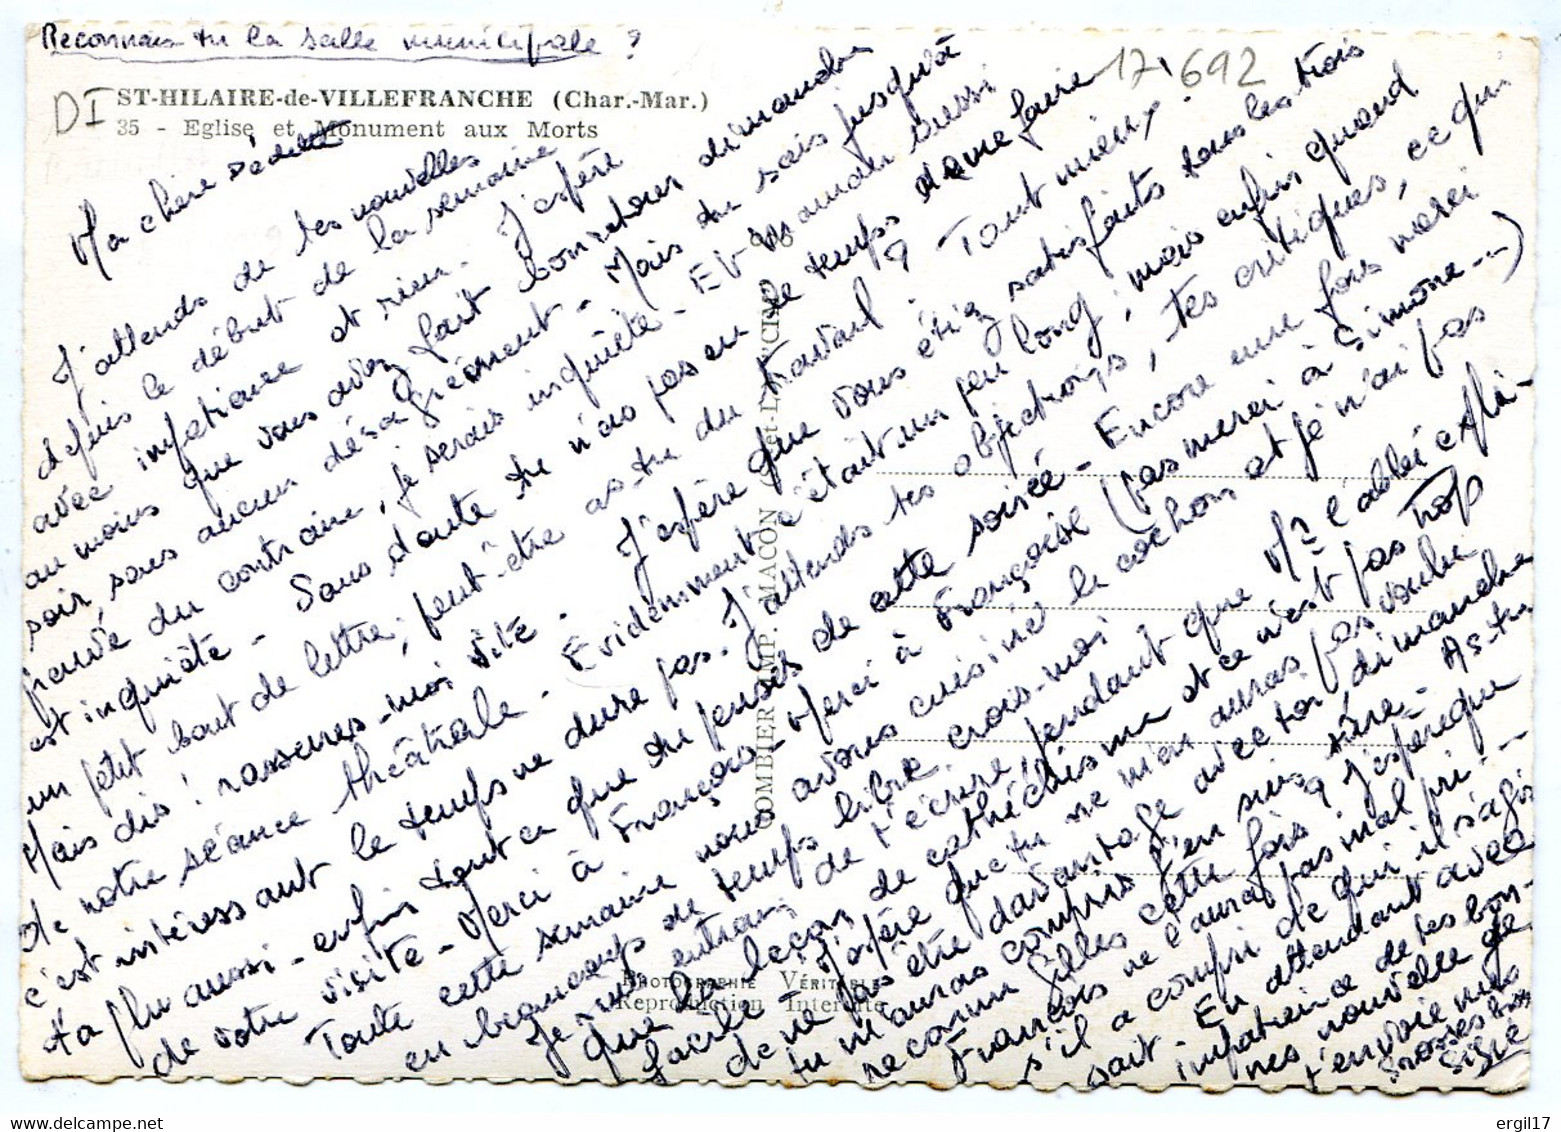 Reconnais tu la salle municipale ?
17.692
DI
ST-HILAIRE-de-VILLEFRANCHE (Char.-Mar.)
35 - Eglise et Monument aux Morts
Ma chère
J'attends de tes nouvelles
depuis le début de la semaine
avec impatience et rien. J'espère
au moins que vous avez fait bon retour dimanche
soir, sans aucun désagrément - Mais tu sais jusqu'à
preuve du contraire, je serais inquiète - Et maman aussi
est inquiète - Sans doute tu n'as pas eu le temps de me faire
un petit bout de lettre ; peut-être as-tu du travail ? Tant mieux.
Mais dis ! rassures-moi vite - J'espère que vous étiez satisfaits tous les trois
de notre séance théâtrale - Evidemment c'était un peu long ; mais enfin quand
c'est intéressant le temps ne dure pas. J'attends tes objections, tes critiques, ce qui
t'a plu aussi - enfin tout ce que tu penses de cette soirée - Encore une fois merci
de votre visite - Merci à François - Merci à Françoise (pas merci à Simone ...)
Toute cette semaine nous avons cuisiné le cochon et je n'ai pas
eu beaucoup de temps libre, crois-moi.
Je suis entrain de t'écrire, pendant que Mr l'abbé
que la leçon de catéchisme et ce n'est pas trop
facile. J'espère que tu ne m'en auras pas voulu
de ne pas être davantage avec toi, dimanche
tu m'auras compris j'en suis sûre - As-tu
reconnu filles cette fois ? J'espère que
François ne l'aura pas mal pri...
s'il a compris de qui il s'agis
sait - En attendant avec
impatience de tes bon-
nes nouvelles je
t'envoie mes
grosses bises
PHOTOGRAPHIE VÉRITABLE
Reproduction Interdite
COMBIER IMP. MACON